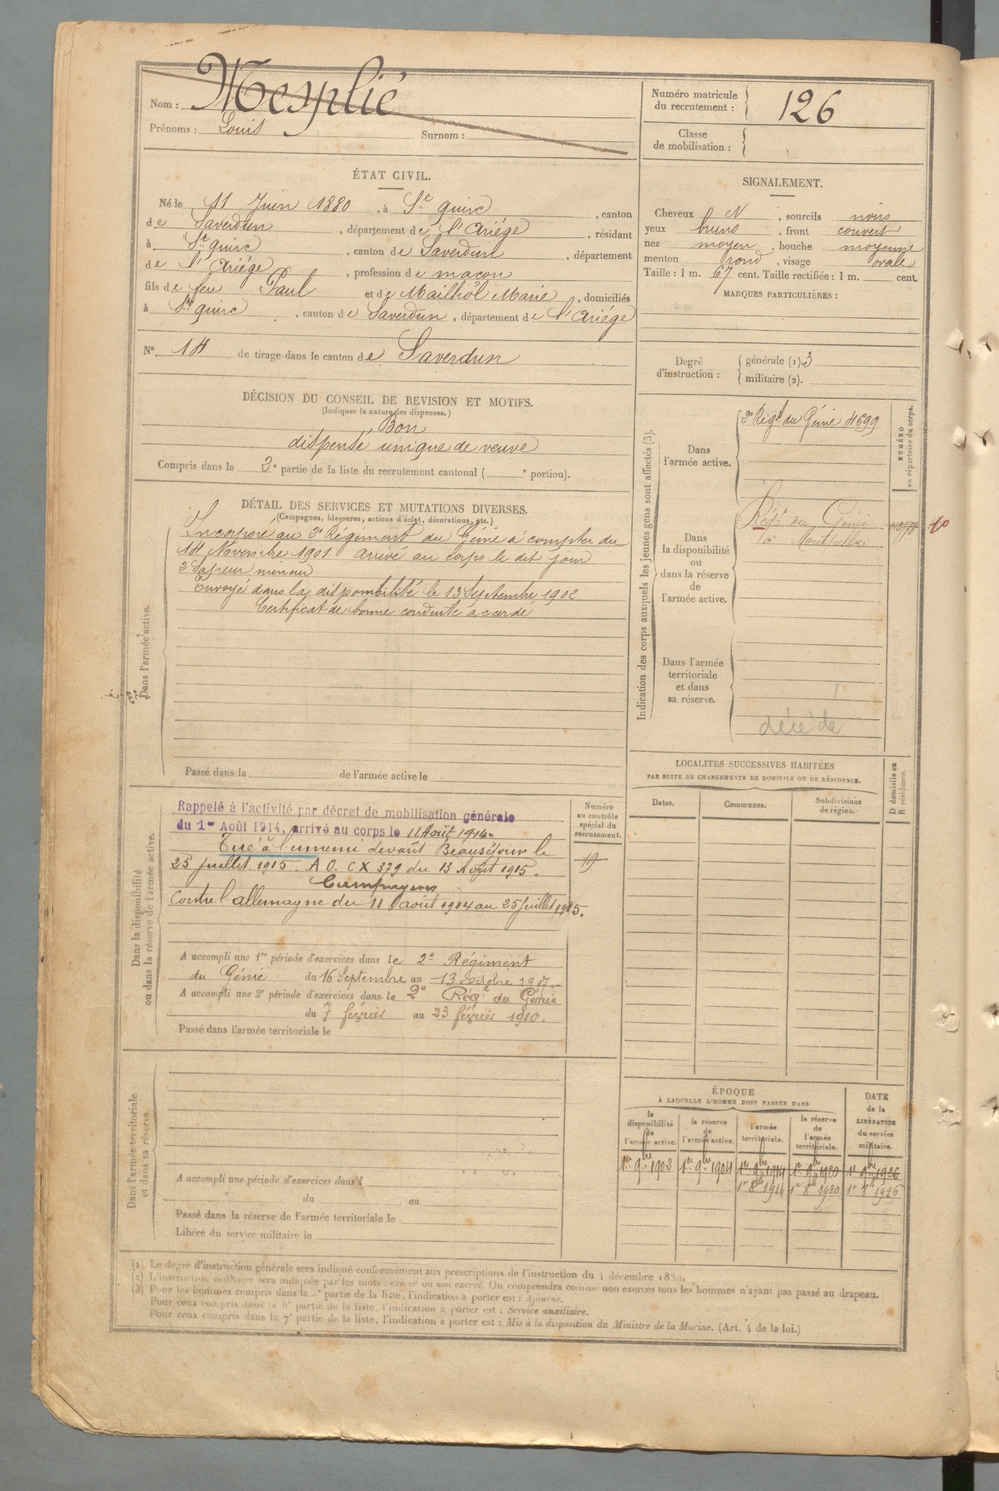 Nom : Mesplié
Prénoms : Louis Surnom :
Numéro matricule du recrutement : 126
Classe de mobilisation :
ÉTAT CIVIL.
Né le 11 Juin 1880, à St Quirc, canton
de Saverdun, département de l'Ariége, résidant
à St Quirc, canton de Saverdun, département
de l'Ariége, profession de maçon
fils de feu Paul et de Mailhôl Marie, domiciliés
à St Quirc, canton de Saverdun, département de l'Ariége
N° 14 de tirage dans le canton de Saverdun
SIGNALEMENT.
Cheveux N, sourcils noirs
yeux bruns, front couvert
nez moyen, bouche moyenne
menton rond, visage ovale
Taille : 1 m. 67 cent. Taille rectifiée : 1 m. cent.
MARQUES PARTICULIÈRES :
Degré d'instruction : générale (1). 3
militaire (2).
DÉCISION DU CONSEIL DE REVISION ET MOTIFS.
(Indiquer la nature des dispenses.)
Bon
dispensé unique de veuve
Compris dans la 2e partie de la liste du recrutement cantonal ( e portion).
DÉTAIL DES SERVICES ET MUTATIONS DIVERSES.
(Campagnes, blessures, actions d'éclat, décorations, etc.)
Incorporé au 2e Régiment du Génie à compter du
14 Novembre 1901 arrivé au corps le dit jour
2e Sapeur mineur
Envoyé dans la disponibilité le 13 Septembre 1902
Certificat de bonne conduite accordé
Dans l'armée active.
Passé dans la de l'armée active le
Indication des corps auxquels les jeunes gens sont affectés (3).
Dans l'armée active.
2e Régt du Génie 4699
NUMÉRO au répertoire du corps.
Dans la disponibilité ou dans la réserve de l'armée active.
Régt du Génie
à Montpellier
Dans l'armée territoriale et dans sa réserve.
décédé
Dans la disponibilité ou dans la réserve de l'armée active.
Rappelé à l'activité par décret de mobilisation générale
du 1er Août 1914, arrivé au corps le 11 Août 1914.
Tué à l'ennemi devant Beauséjour le
25 juillet 1915. A.O. CX 379 du 13 Août 1915.
Campagnes
Contre l'allemagne du 11 août 1914 au 25 juillet 1915.
Numéro au contrôle spécial du recrutement.
19
A accompli une 1re période d'exercices dans le 2e Régiment
du Génie du 16 Septembre au 13 octobre 1907.
A accompli une 2e période d'exercices dans le 2e Régt du Génie
du 7 février au 23 février 1910.
Passé dans l'armée territoriale le
LOCALITÉS SUCCESSIVES HABITÉES
PAR SUITE DE CHANGEMENTS DE DOMICILE OU DE RÉSIDENCE.
Dates. Communes. Subdivisions de région. D domicile ou R résidence.
Dans l'armée territoriale et dans sa réserve.
A accompli une période d'exercices dans l
du au
Passé dans la réserve de l'armée territoriale le
Libéré du service militaire le
ÉPOQUE
À LAQUELLE L'HOMME DOIT PASSER DANS
la disponibilité de l'armée active. la réserve de l'armée active. l'armée territoriale. la réserve de l'armée territoriale. DATE de la LIBÉRATION du service militaire.
1er 9bre 1902 1er 9bre 1904 1er 9bre 1914 1er 9bre 1920 1er 9bre 1926
1er 8bre 1914 1er 8bre 1920 1er 8bre 1926
(1) Le degré d'instruction générale sera indiqué conformément aux prescriptions de l'instruction du 4 décembre 1889.
(2) L'instruction militaire sera indiquée par les mots : exercé ou non exercé. On comprendra comme non exercés tous les hommes n'ayant pas passé au drapeau.
(3) Pour les hommes compris dans la partie de la liste, l'indication à porter est : Ajourné.
Pour ceux compris dans la 6e partie de la liste, l'indication à porter est : Service auxiliaire.
Pour ceux compris dans la 7e partie de la liste, l'indication à porter est : Mis à la disposition du Ministre de la Marine. (Art. 4 de la loi.)